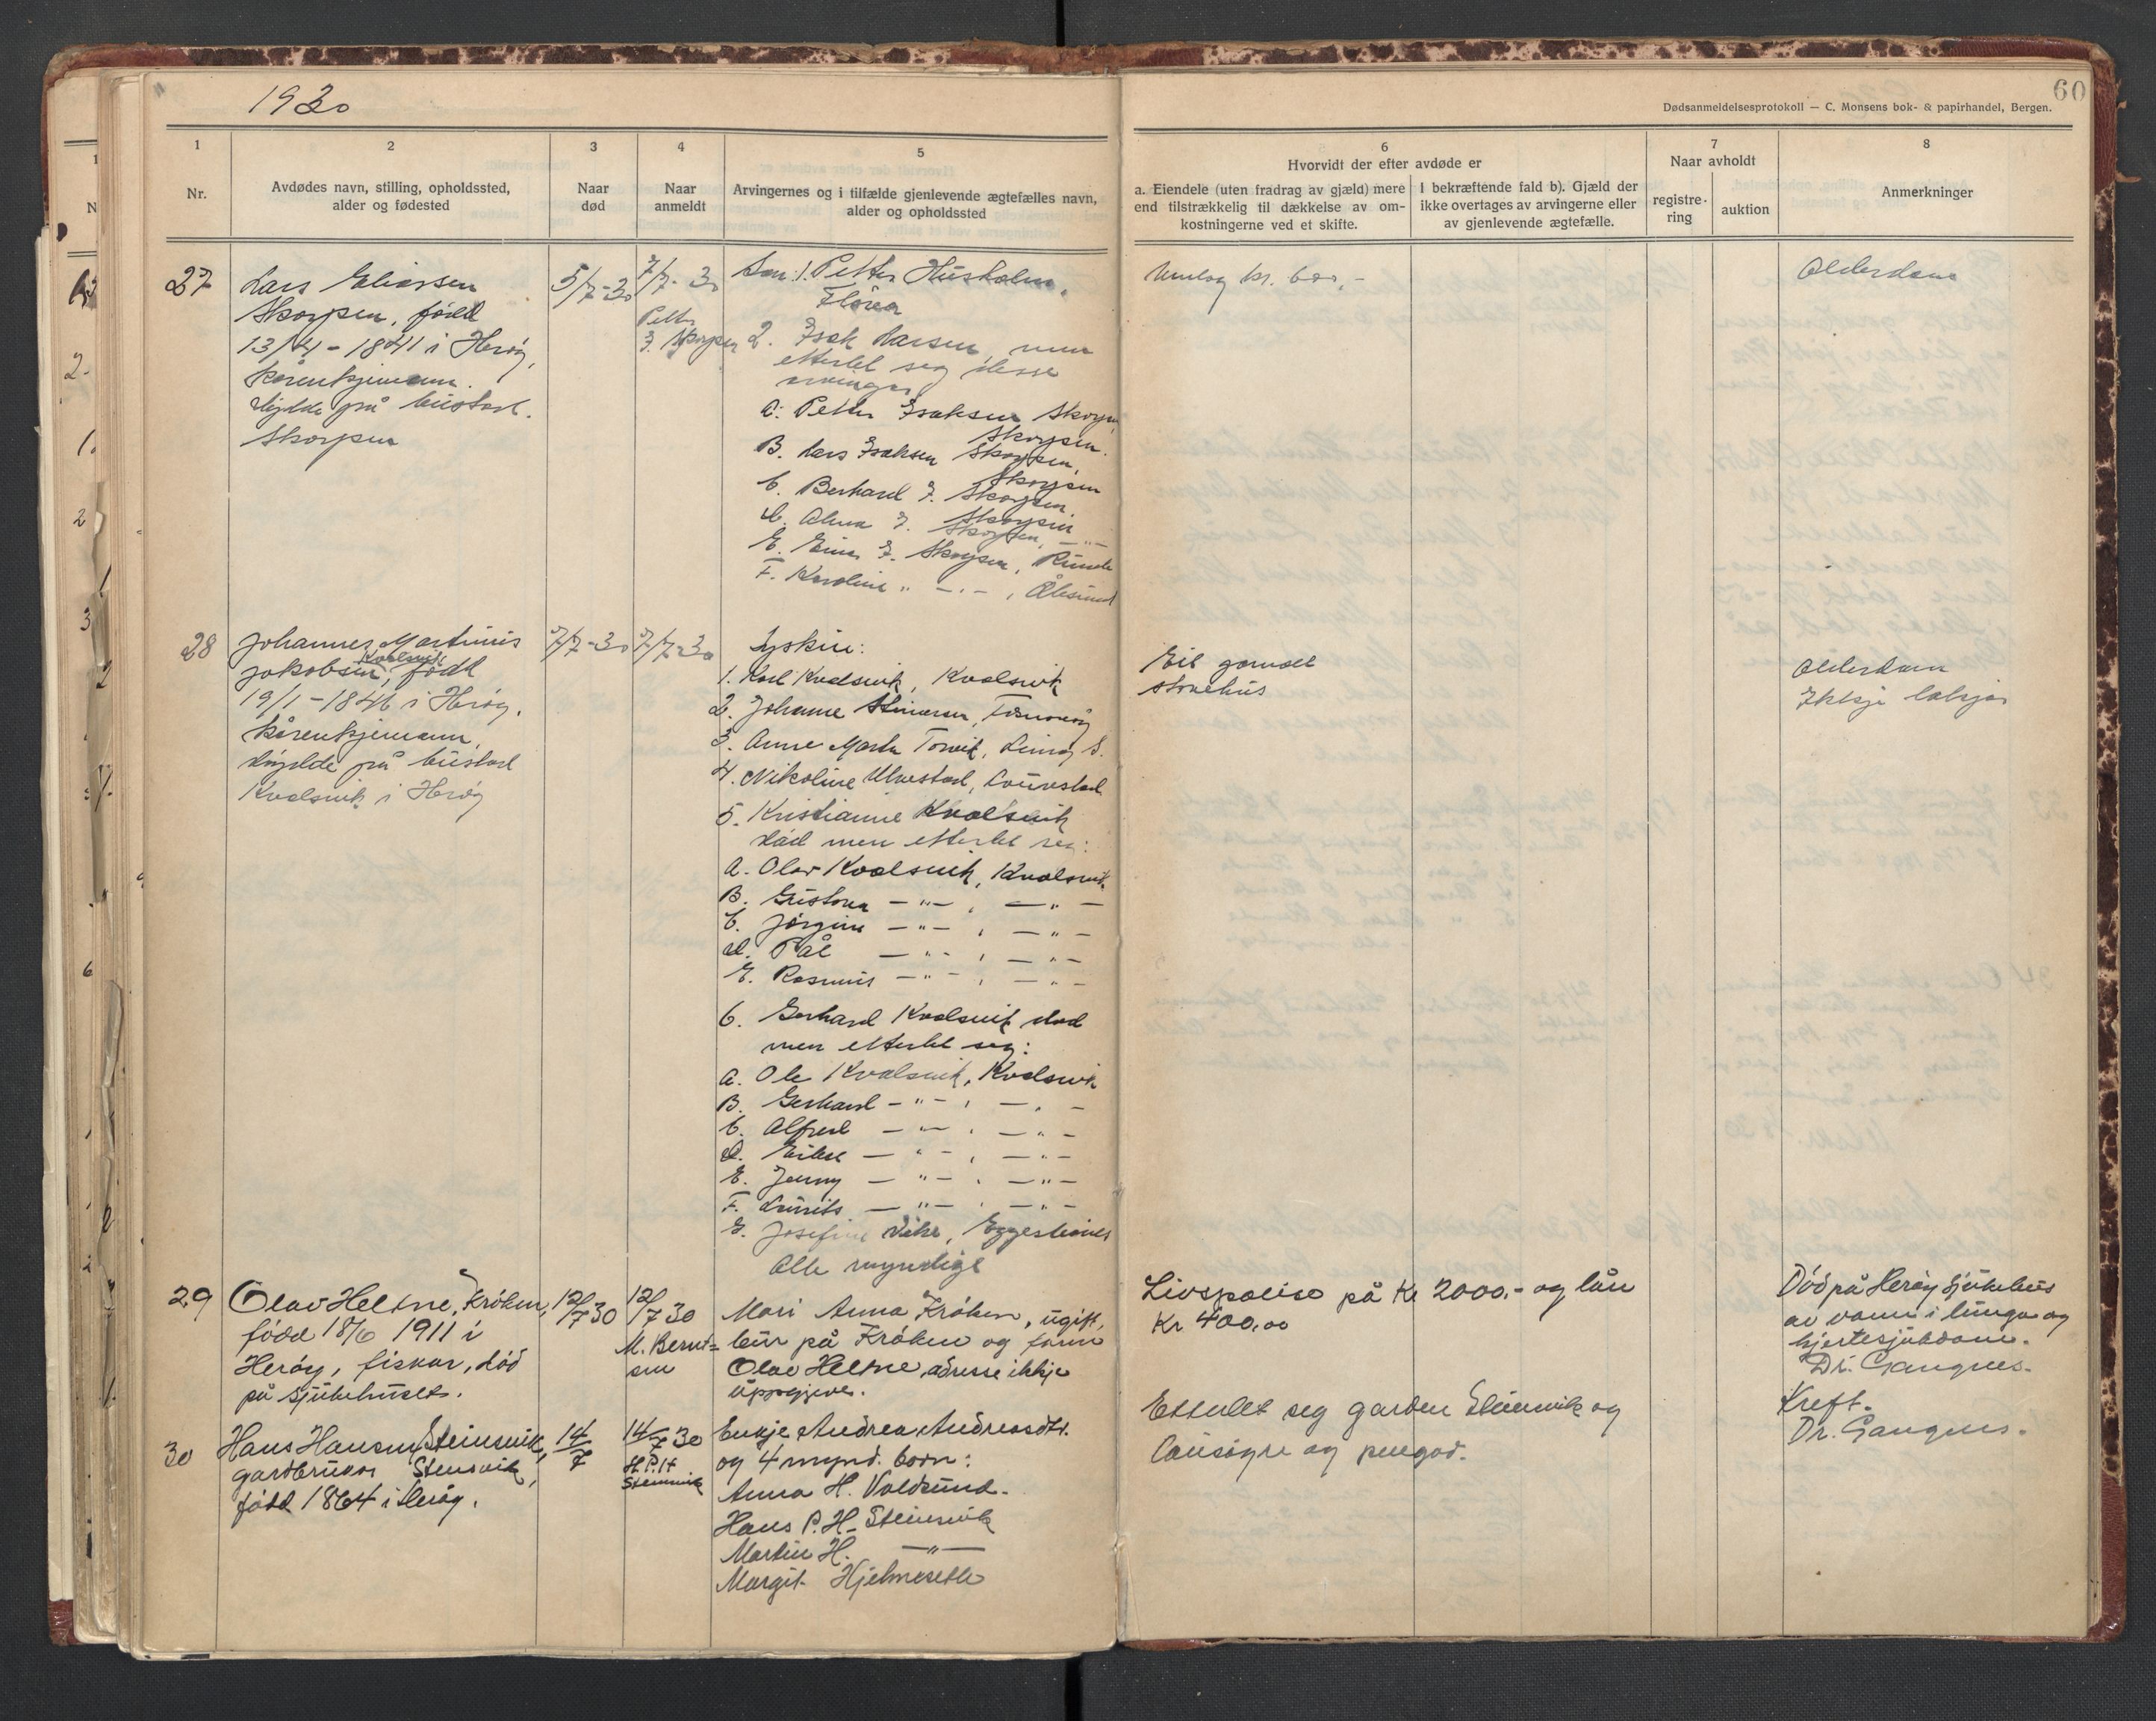 1930
60
Dødsanmeldelsesprotokoll — C. Monsens bok- & papirhandel, Bergen.
1
Nr.
2
Avdødes navn, stilling, opholdssted,
alder og fødested
3
Naar
død
4
Naar
anmeldt
5
Arvingernes og i tilfælde gjenlevende ægtefælles navn,
alder og opholdssted
6
Hvorvidt der efter avdøde er
a. Eiendele (uten fradrag av gjæld) mere
end tilstrækkelig til dækkelse av om-
kostningerne ved et skifte.
I bekræftende fald b). Gjæld der
ikke overtages av arvingerne eller
av gjenlevende ægtefælle.
7
Naar avholdt
registre-
ring
auktion
8
Anmerkninger
27
Lars Eliassen
Skorpen, född
13/4 - 1841 i Herøy,
kårenkjemann.
Skorpen
5/7-30
7/7-30
Petter
I. Skorpen
Son: 1. Petter Husholm,
Florøa
2. Isak Larsen, men
etterlet seg desse
arvingar
A: Petter Isaksen Skorpen
Skorpen.
B. Lars Isaksen Skorpen,
Skorpen
C. Berhard I. Skorpen,
Skorpen
D. Alma I. Skorpen, — " —
E. Einar I. Skorpen, Runde
F. Karoline " — . — , Ålesund
kr. 600,-
Alderdom
28
Johannes Martinus
Kvalsvik
Jakobsen, född
19/1 - 1846 i Herøy.
kårenkjemann,
döyde på bustad
Kvalsvik i Herøy
7/7-30
7/7-30
Syskin:
1. Karl Kvalsvik, Kvalsvik
2. Johanne
3. Anne Marta Torvik, Leinøy S.
4. Nikoline Ulvestad,
5. Kristianne Kvalsvik
död men etterlet seg:
A. Olav Kvalsvik, Kvalsvik
B. Gustava — " — , — " —
C. Jørgine — " — , — " —
D. Pål — " — , — " —
E. Rasmus — " — , — " —
6. Gerhard Kvalsvik död
men etterlet seg:
A. Ole Kvalsvik, Kvalsvik
B. Gerhard — " — , — " —
C. Alfred — " — , — " —
D. — " — , — " —
E. Jenny — " — , — " —
F. Laurits — " — , — " —
G. Josefine Vike, Eggesbønes
Alle myndige
Eit gamalt
stovehus
Alderdom
Ikkje lækjar
29
Olav Heltne, Kröken,
född 18/6 1911 i
Heröy, fiskar, död
på sjukehuset.
12/7 30
12/7 30
M. Bernt=
sen
Mari Anna Kröken, ugift,
bur på Kröken og faren
Olav Heltne, adresse ikkje
uppgjeve.
Livspolise på Kr 2000,- og lån
Kr 400,00
Död på Heröy sjukehus
av vann i lunga og
hjertesjukdom.
Dr. Gangnes.
30
Hans Hansen Steinsvik,
gardbrukar Stensvik,
född 1864 i Heröy.
14/7
14/7 30
H.P.H
Steinsvik
Enkje Andrea Andreasdtr.
og 4 mynd. born:
Anna H. Voldsund.
Hans P. H. Steinsvik
Martin H. — " —
Margit Hjelmeseth
Etterlet seg garden Steinsvik og
lausöyre og pengar.
Kreft.
Dr. Gangnes.